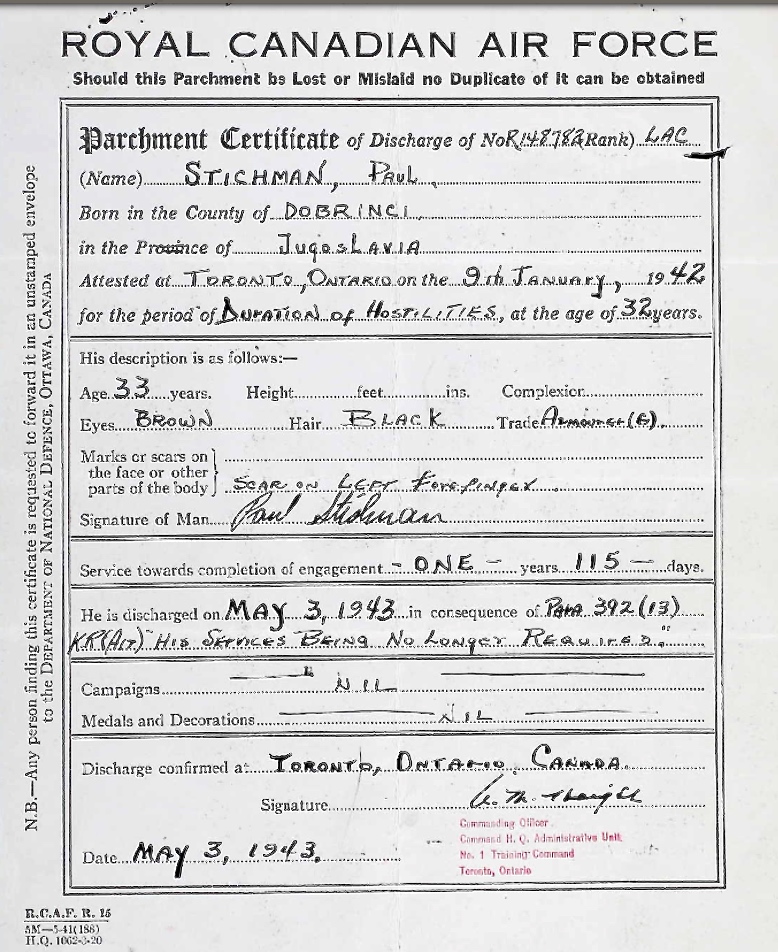 ROYAL CANADIAN AIR FORCE
Should this Parchment be Lost or Mislaid no Duplicate of it can be obtained
Parchment Certificate of Discharge of No R148782 Rank) LAC
(Name) STICHMAN, PAUL
Born in the County of DOBRINCI
in the Province of JUGOSLAVIA
Attested at TORONTO, ONTARIO on the 9th JANUARY, 1942
for the period of DURATION OF HOSTILITIES, at the age of 32 years.
His description is as follows:—
Age 33 years. Height feet ins. Complexion
Eyes BROWN Hair BLACK Trade ARMOURER(G)
Marks or scars on
the face or other
parts of the body } SCAR ON LEFT FOREFINGER
Signature of Man Paul Stichman
Service towards completion of engagement - ONE - years 115 - days.
He is discharged on MAY 3, 1943 in consequence of PARA 392(13)
KR(AIR) "HIS SERVICES BEING NO LONGER REQUIRED."
Campaigns NIL
Medals and Decorations NIL
Discharge confirmed at TORONTO, ONTARIO, CANADA.
Signature
Commanding Officer
Command H. Q. Administrative Unit,
No. 1 Training Command
Toronto, Ontario
Date MAY 3, 1943.
N.B.—Any person finding this certificate is requested to forward it in an unstamped envelope
to the DEPARTMENT OF NATIONAL DEFENCE, OTTAWA, CANADA
R.C.A.F. R. 15
5M—5-41(188)
H.Q. 1062-3-20